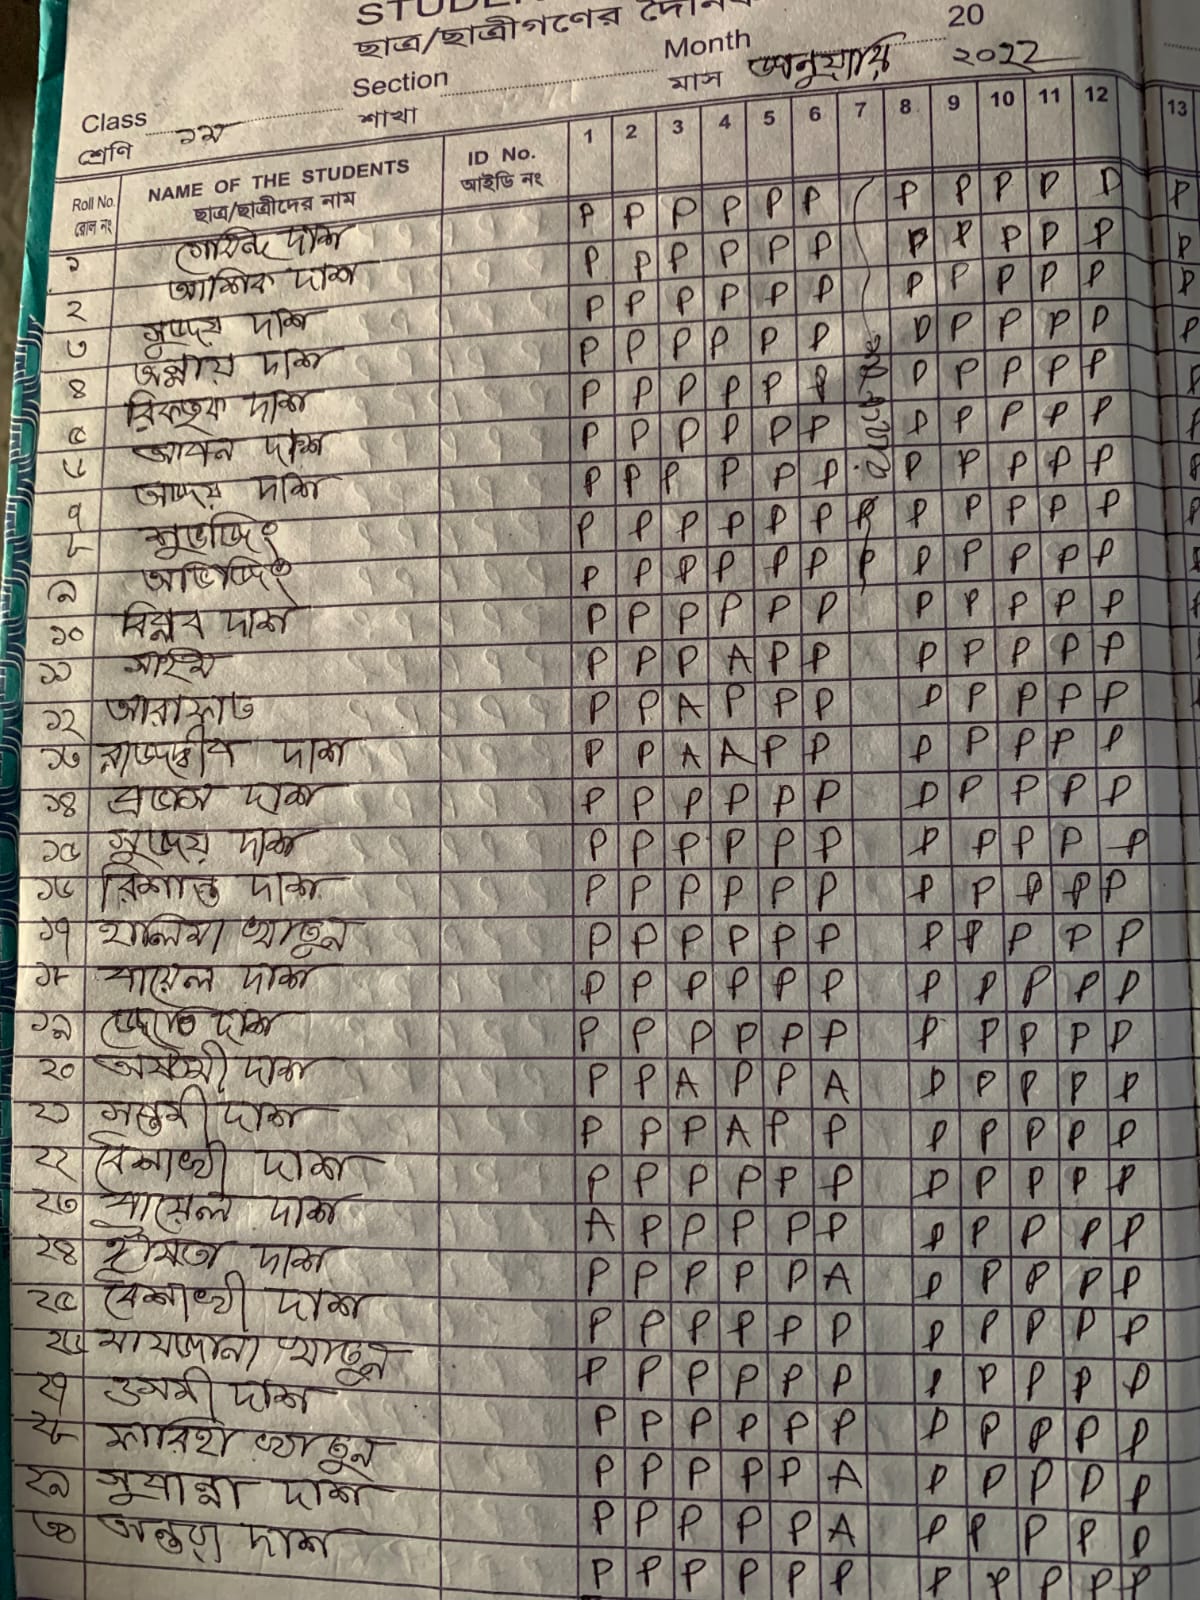 ছাত্র/ছাত্রীগণের
Class ১ম Section Month জানুয়ারি 20 ২০২২
শ্রেণি শাখা মাস
Roll No. NAME OF THE STUDENTS ID No. 1 2 3 4 5 6 7 8 9 10 11 12 13
রোল নং ছাত্র/ছাত্রীদের নাম আইডি নং
১ গোবিন্দ দাশ P P P P P P P P P P P P
২ আশিক দাশ P P P P P P P P P P P P
৩ সৃজয় দাশ P P P P P P P P P P P P
৪ দাশ P P P P P P P P P P P P
৫ দাশ P P P P P P P P P P P P
৬ দাশ P P P P P P P P P P P
৭ দাশ P P P P P P P P P P P
৮ শুভজিৎ P P P P P P P P P P P P
৯ অভিজিৎ P P P P P P P P P P P P
১০ বিপ্লব দাশ P P P P P P P P P P P
১১ P P P A P P P P P P P
১২ আরাফাত P P A P P P P P P P P
১৩ রাজদ্বীপ দাশ P P A A P P P P P P P
১৪ দাশ P P P P P P P P P P P
১৫ সৃজয় দাশ P P P P P P P P P P P
১৬ রিশান্ত দাশ P P P P P P P P P P P
১৭ হালিমা খাতুন P P P P P P P P P P P
১৮ পায়েল দাশ P P P P P P P P P P P
১৯ জোতি দাশ P P P P P P P P P P P
২০ অষ্টমী দাশ P P A P P A P P P P P
২১ সপ্তমী দাশ P P P A P P P P P P P
২২ বৈশাখী দাশ P P P P P P P P P P P
২৩ পায়েল দাশ A P P P P P P P P P P
২৪ দাশ P P P P P A P P P P P
২৫ বৈশাখী দাশ P P P P P P P P P P P
২৬ খাতুন P P P P P P P P P P P
২৭ দাশ P P P P P P P P P P P
২৮ ফারিহা খাতুন P P P P P A P P P P P
২৯ দাশ P P P P P A P P P P P
৩০ দাশ P P P P P P P P P P P